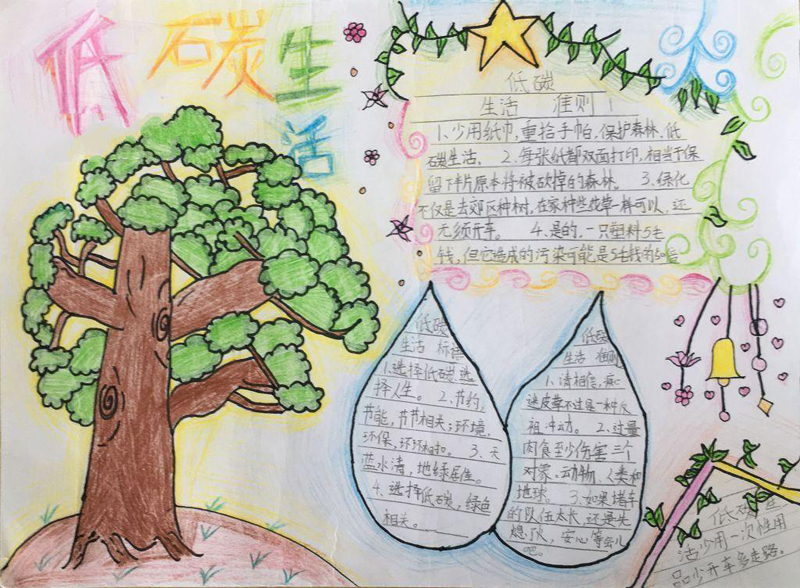 低碳生活
低碳
生活 准则！
1、少用纸巾，重拾手帕，保护森林，低
碳生活。 2、每张纸都双面打印，相当于保
留下半片原本将被砍掉的森林。 3、绿化
不仅是去郊区种树，在家种些花草一样可以，还
无须开车。 4、是的，一只塑料5毛
钱，但它造成的污染可能是5毛钱的50倍
低碳
生活 标语
1、选择低碳，选
择人生。 2、节约，
节能，节节相关；环境，
环保，环环相扣。 3、天
蓝水清，地绿居佳。
4、选择低碳，绿色
相关。
低碳
生活 准则
1、请相信，痴
迷皮草不过是一种反
祖冲动。 2、过量
肉食至少伤害三个
对象、动物、人类和
地球。 3、如果堵车
的队伍太长，还是先
熄火，安心等会儿
吧。
低碳生
活少用一次性用
品少开车多走路。